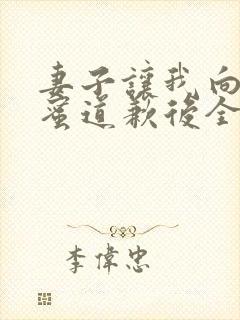 妻子讓我向
蜜道歉後全
李偉忠